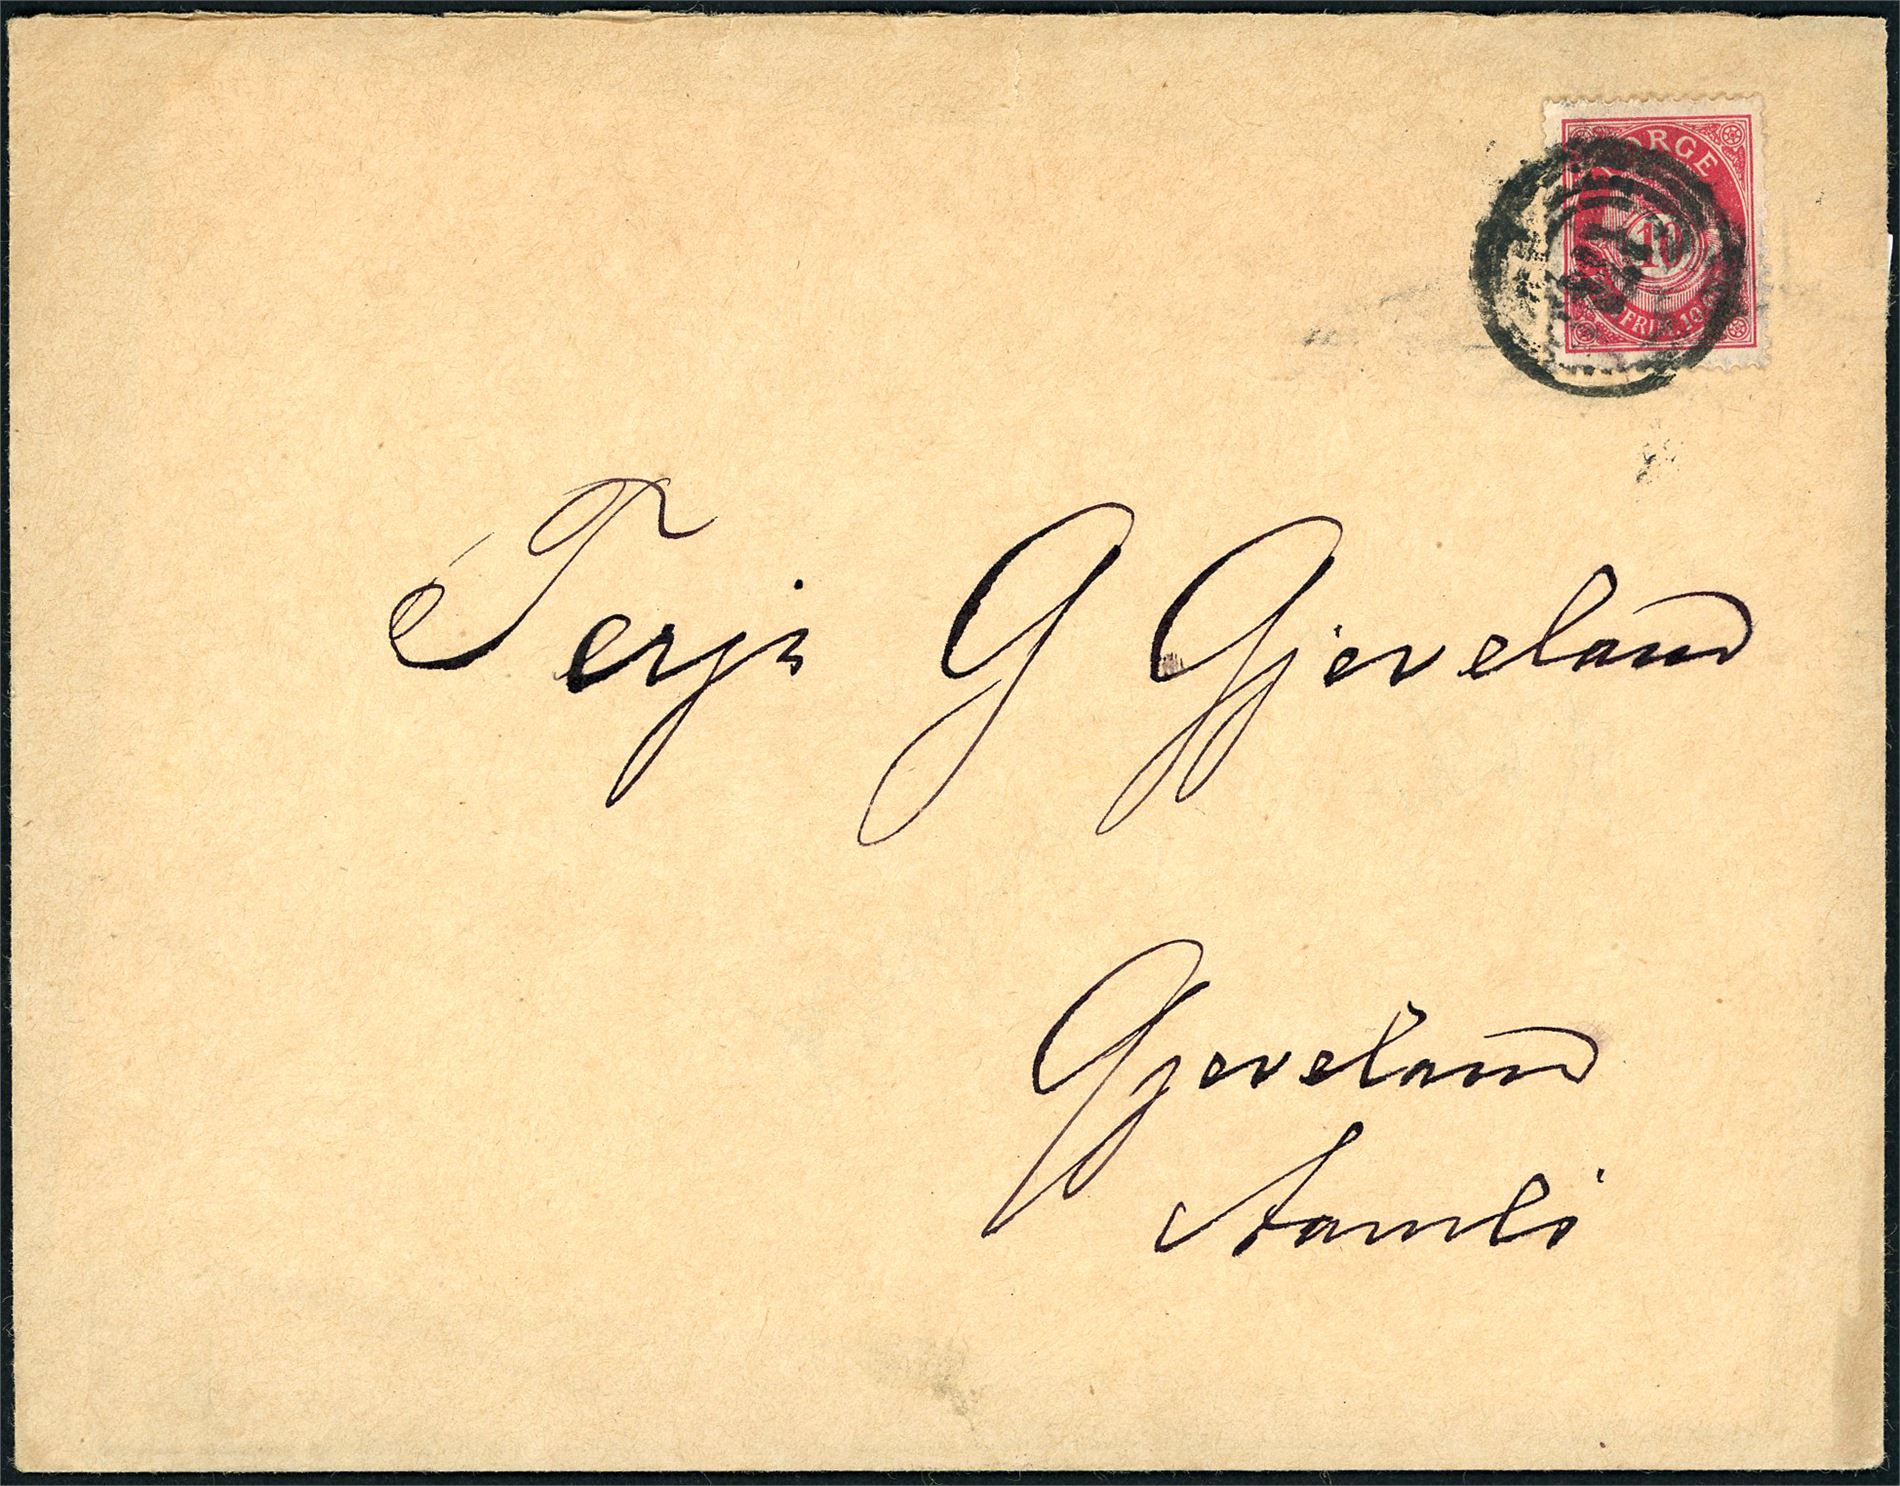 NORGE
10
FRIM. 10
Terji G Gjeveland
Gjeveland
Aamli